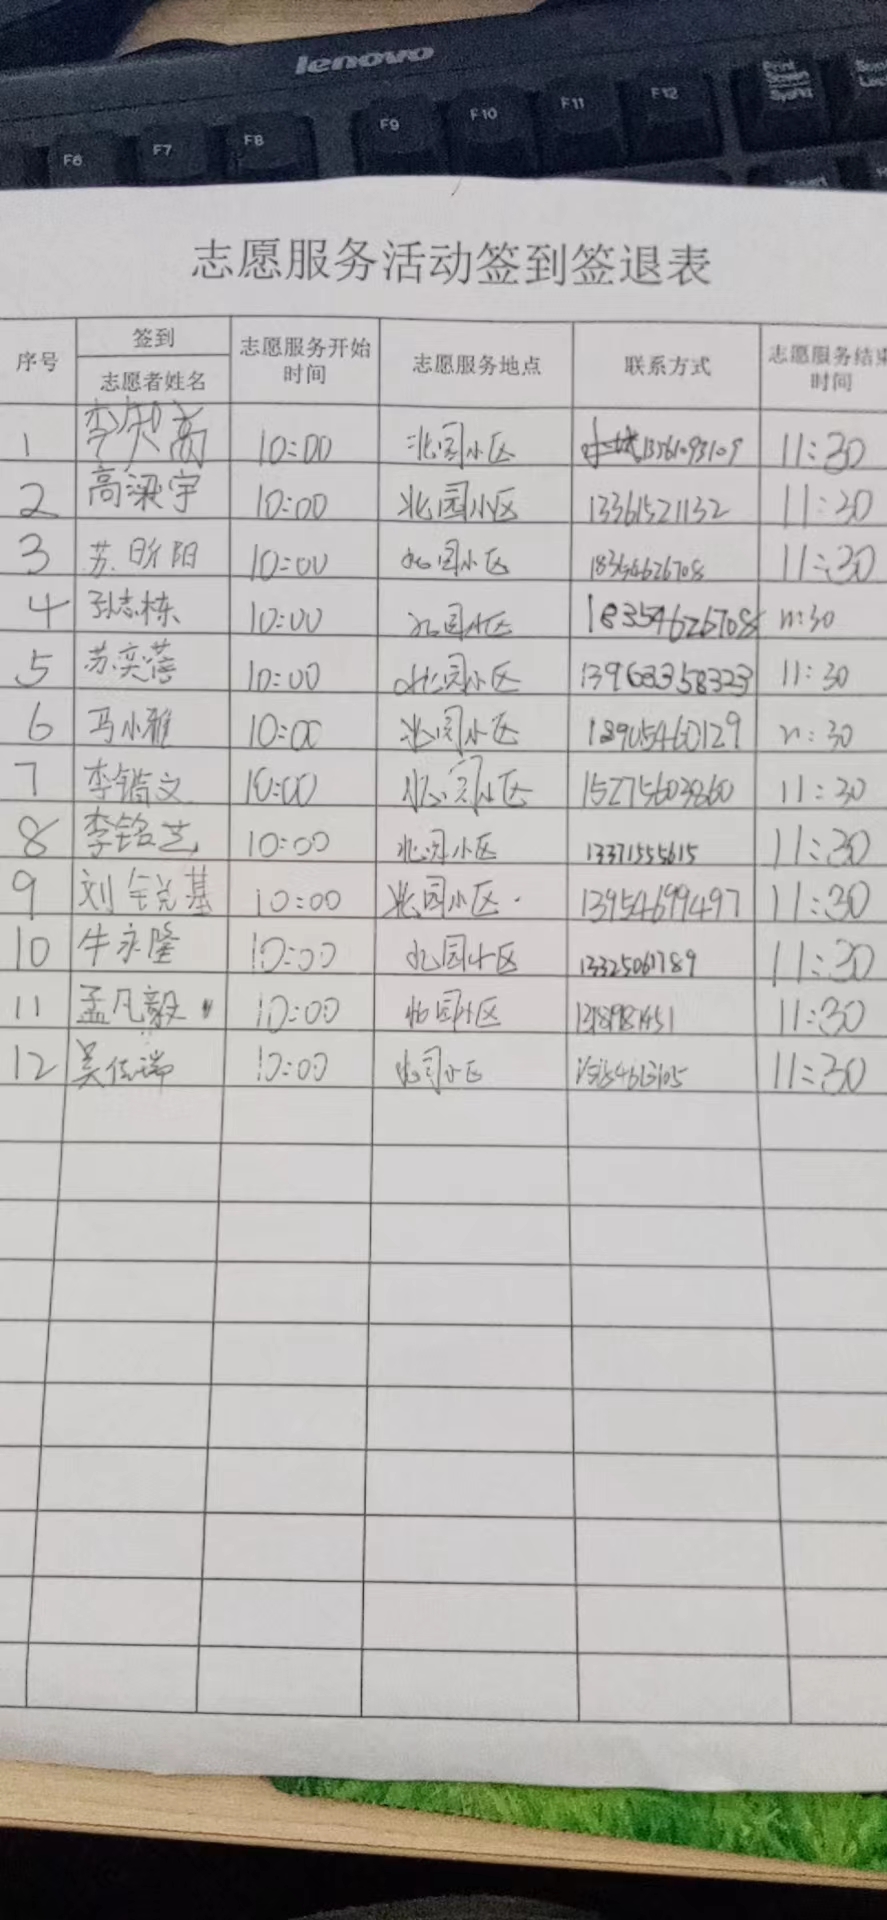 lenovo
F6 F7 F8 F9 F10 F11 F12 Print Screen SysRq
志愿服务活动签到签退表
序号 签到 志愿者姓名 志愿服务开始时间 志愿服务地点 联系方式 志愿服务结束时间
1 李知高 10:00 北园小区 11:30
2 高梁宇 10:00 北园小区 13361521132 11:30
3 苏昕阳 10:00 北园小区 18354626708 11:30
4 孙志栋 10:00 北园小区 18354626708 11:30
5 苏奕蓓 10:00 北园小区 13963358323 11:30
6 马小雅 10:00 北园小区 18905460129 11:30
7 李锴文 10:00 北园小区 15275603860 11:30
8 李铭艺 10:00 北园小区 13371555615 11:30
9 刘锐基 10:00 北园小区 13954699497 11:30
10 牛永隆 10:00 北园小区 13325061789 11:30
11 孟凡毅 10:00 北园小区 11:30
12 吴佳瑞 10:00 北园小区 11:30